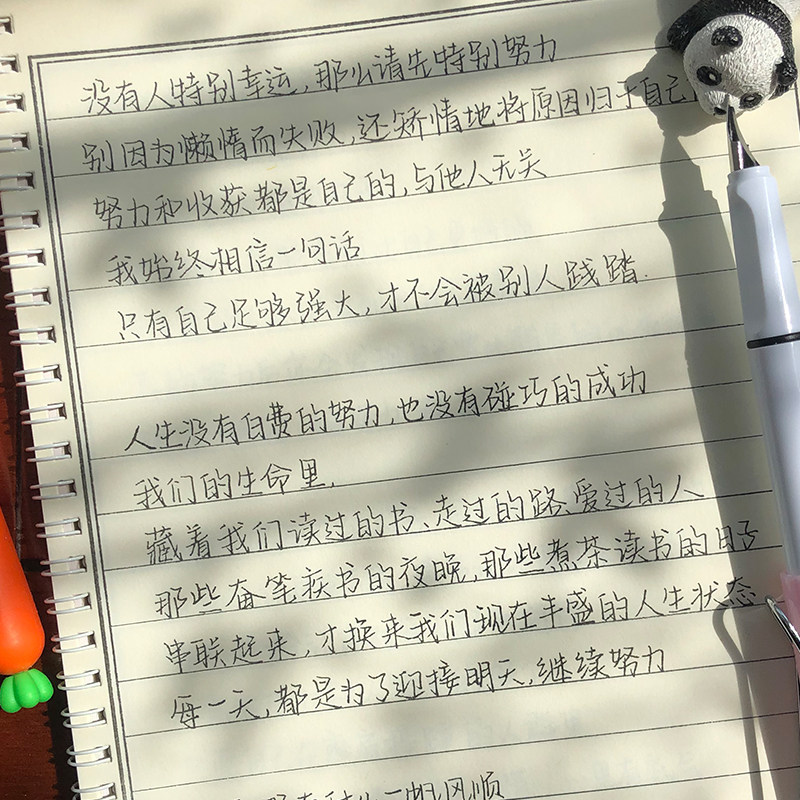 没有人特别幸运,那么请先特别努力
别因为懒惰而失败,还矫情地将原因归于自己
努力和收获都是自己的,与他人无关
我始终相信一句话
只有自己足够强大,才不会被别人践踏.
人生没有白费的努力,也没有碰巧的成功
我们的生命里,
藏着我们读过的书、走过的路、爱过的人
那些奋笔疾书的夜晚,那些煮茶读书的日子
串联起来,才换来我们现在丰盛的人生状态
每一天,都是为了迎接明天,继续努力
一帆风顺